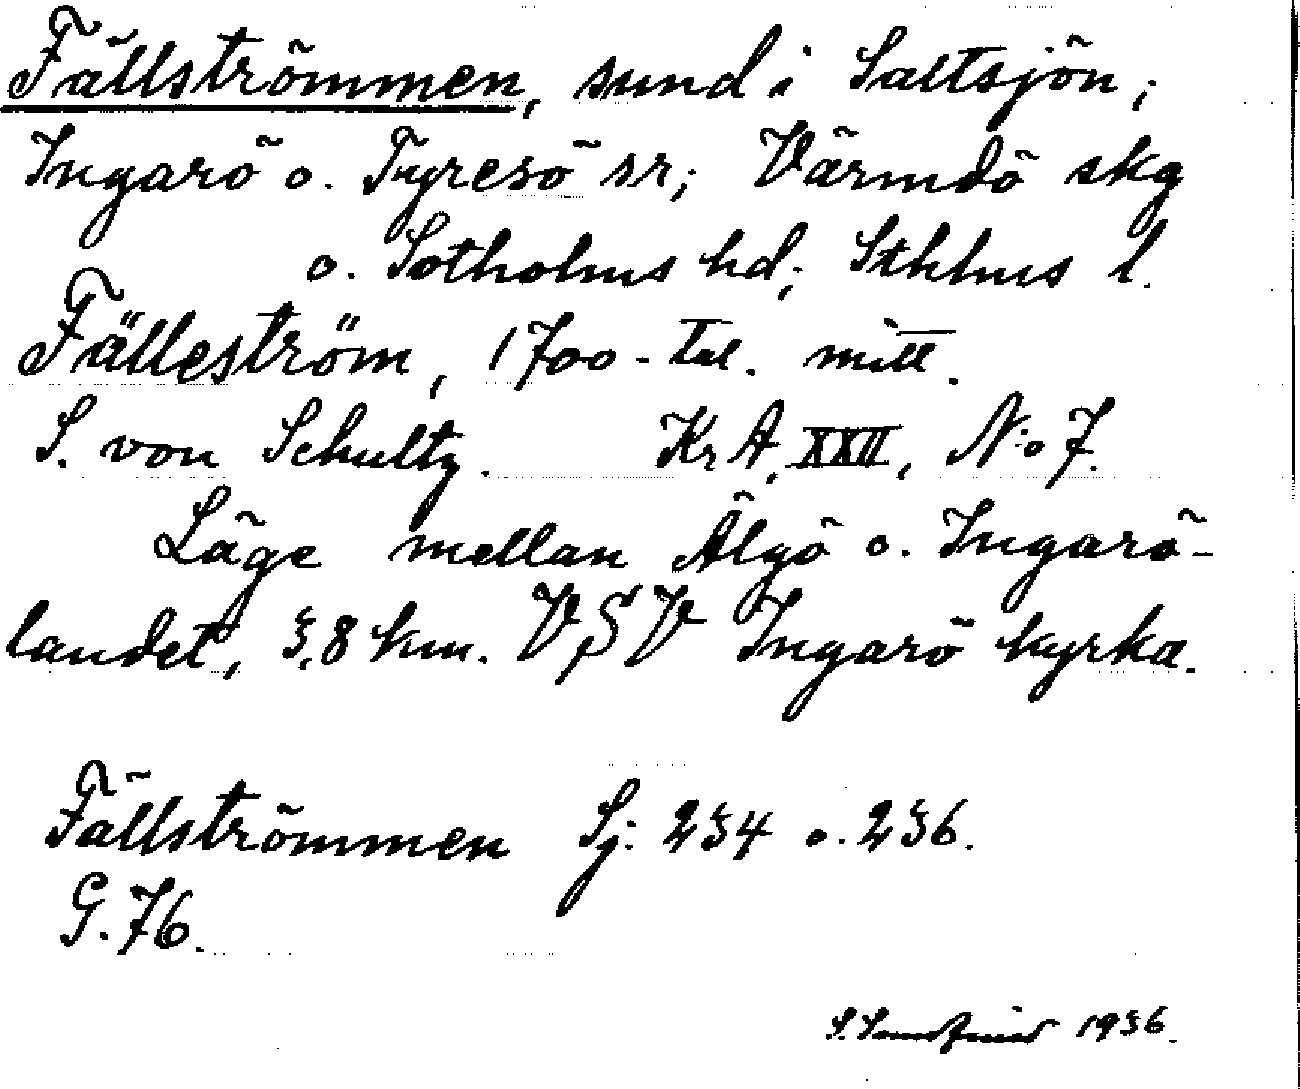 Fällströmmen, sund i Saltsjön;
Ingarö o. Tyresö sr; Värmdö skg
o. Sotholms hd; Sthlms l.
Fälleström, 1700-tal. mitt.
S. von Schultz. KrA, XXII, N:o 7.
Läge mellan Älgö o. Ingarö-
landet, 3,8 km. VSV Ingarö kyrka.
Fällströmmen Sj: 234 o. 236.
G. 76.
S. 1936.